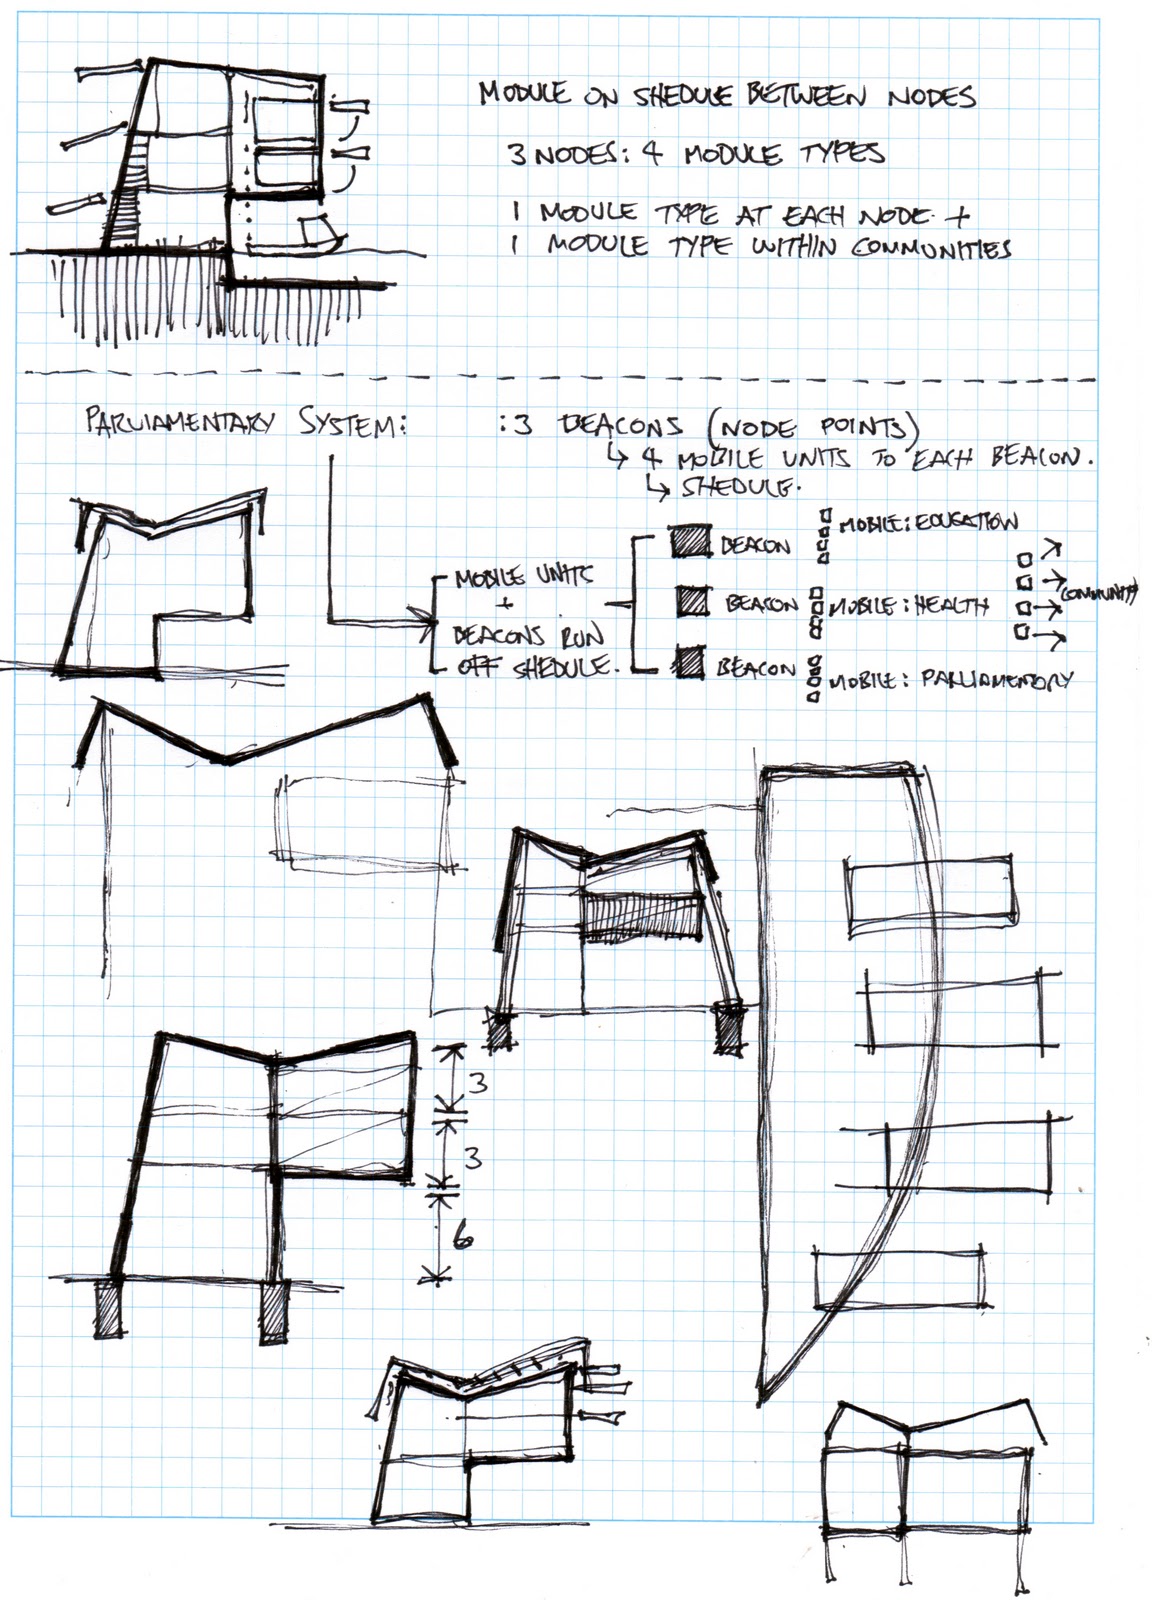 MODULE ON SHEDULE BETWEEN NODES
3 NODES: 4 MODULE TYPES
1 MODULE TYPE AT EACH NODE. +
1 MODULE TYPE WITHIN COMMUNITIES
PARLIAMENTARY SYSTEM: :3 BEACONS (NODE POINTS)
↳ 4 MOBILE UNITS TO EACH BEACON.
↳ SHEDULE.
MOBILE UNITS
+
BEACONS RUN
OFF SHEDULE.
BEACON
MOBILE: EDUCATION
BEACON
MOBILE: HEALTH
COMMUNITY
BEACON
MOBILE: PARLIAMENTORY
3
3
6